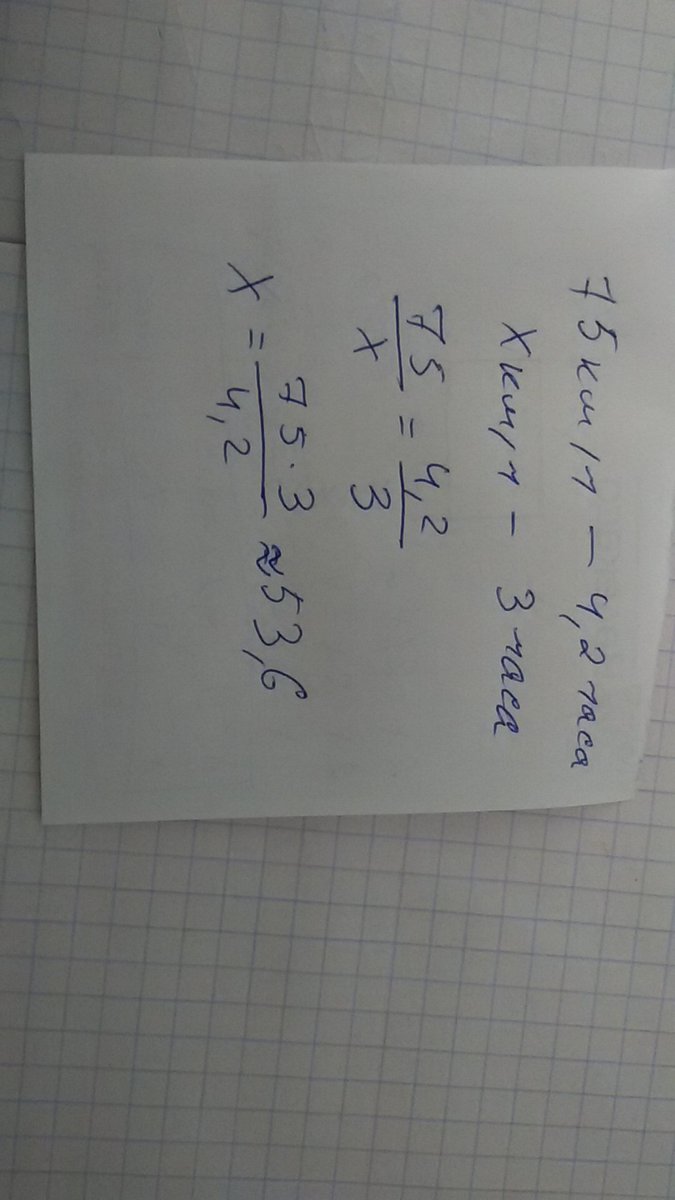 75 км/ч — 4,2 часа
x км/ч - 3 часа
75/x = 4,2/3
x = 75·3/4,2 ≈ 53,6